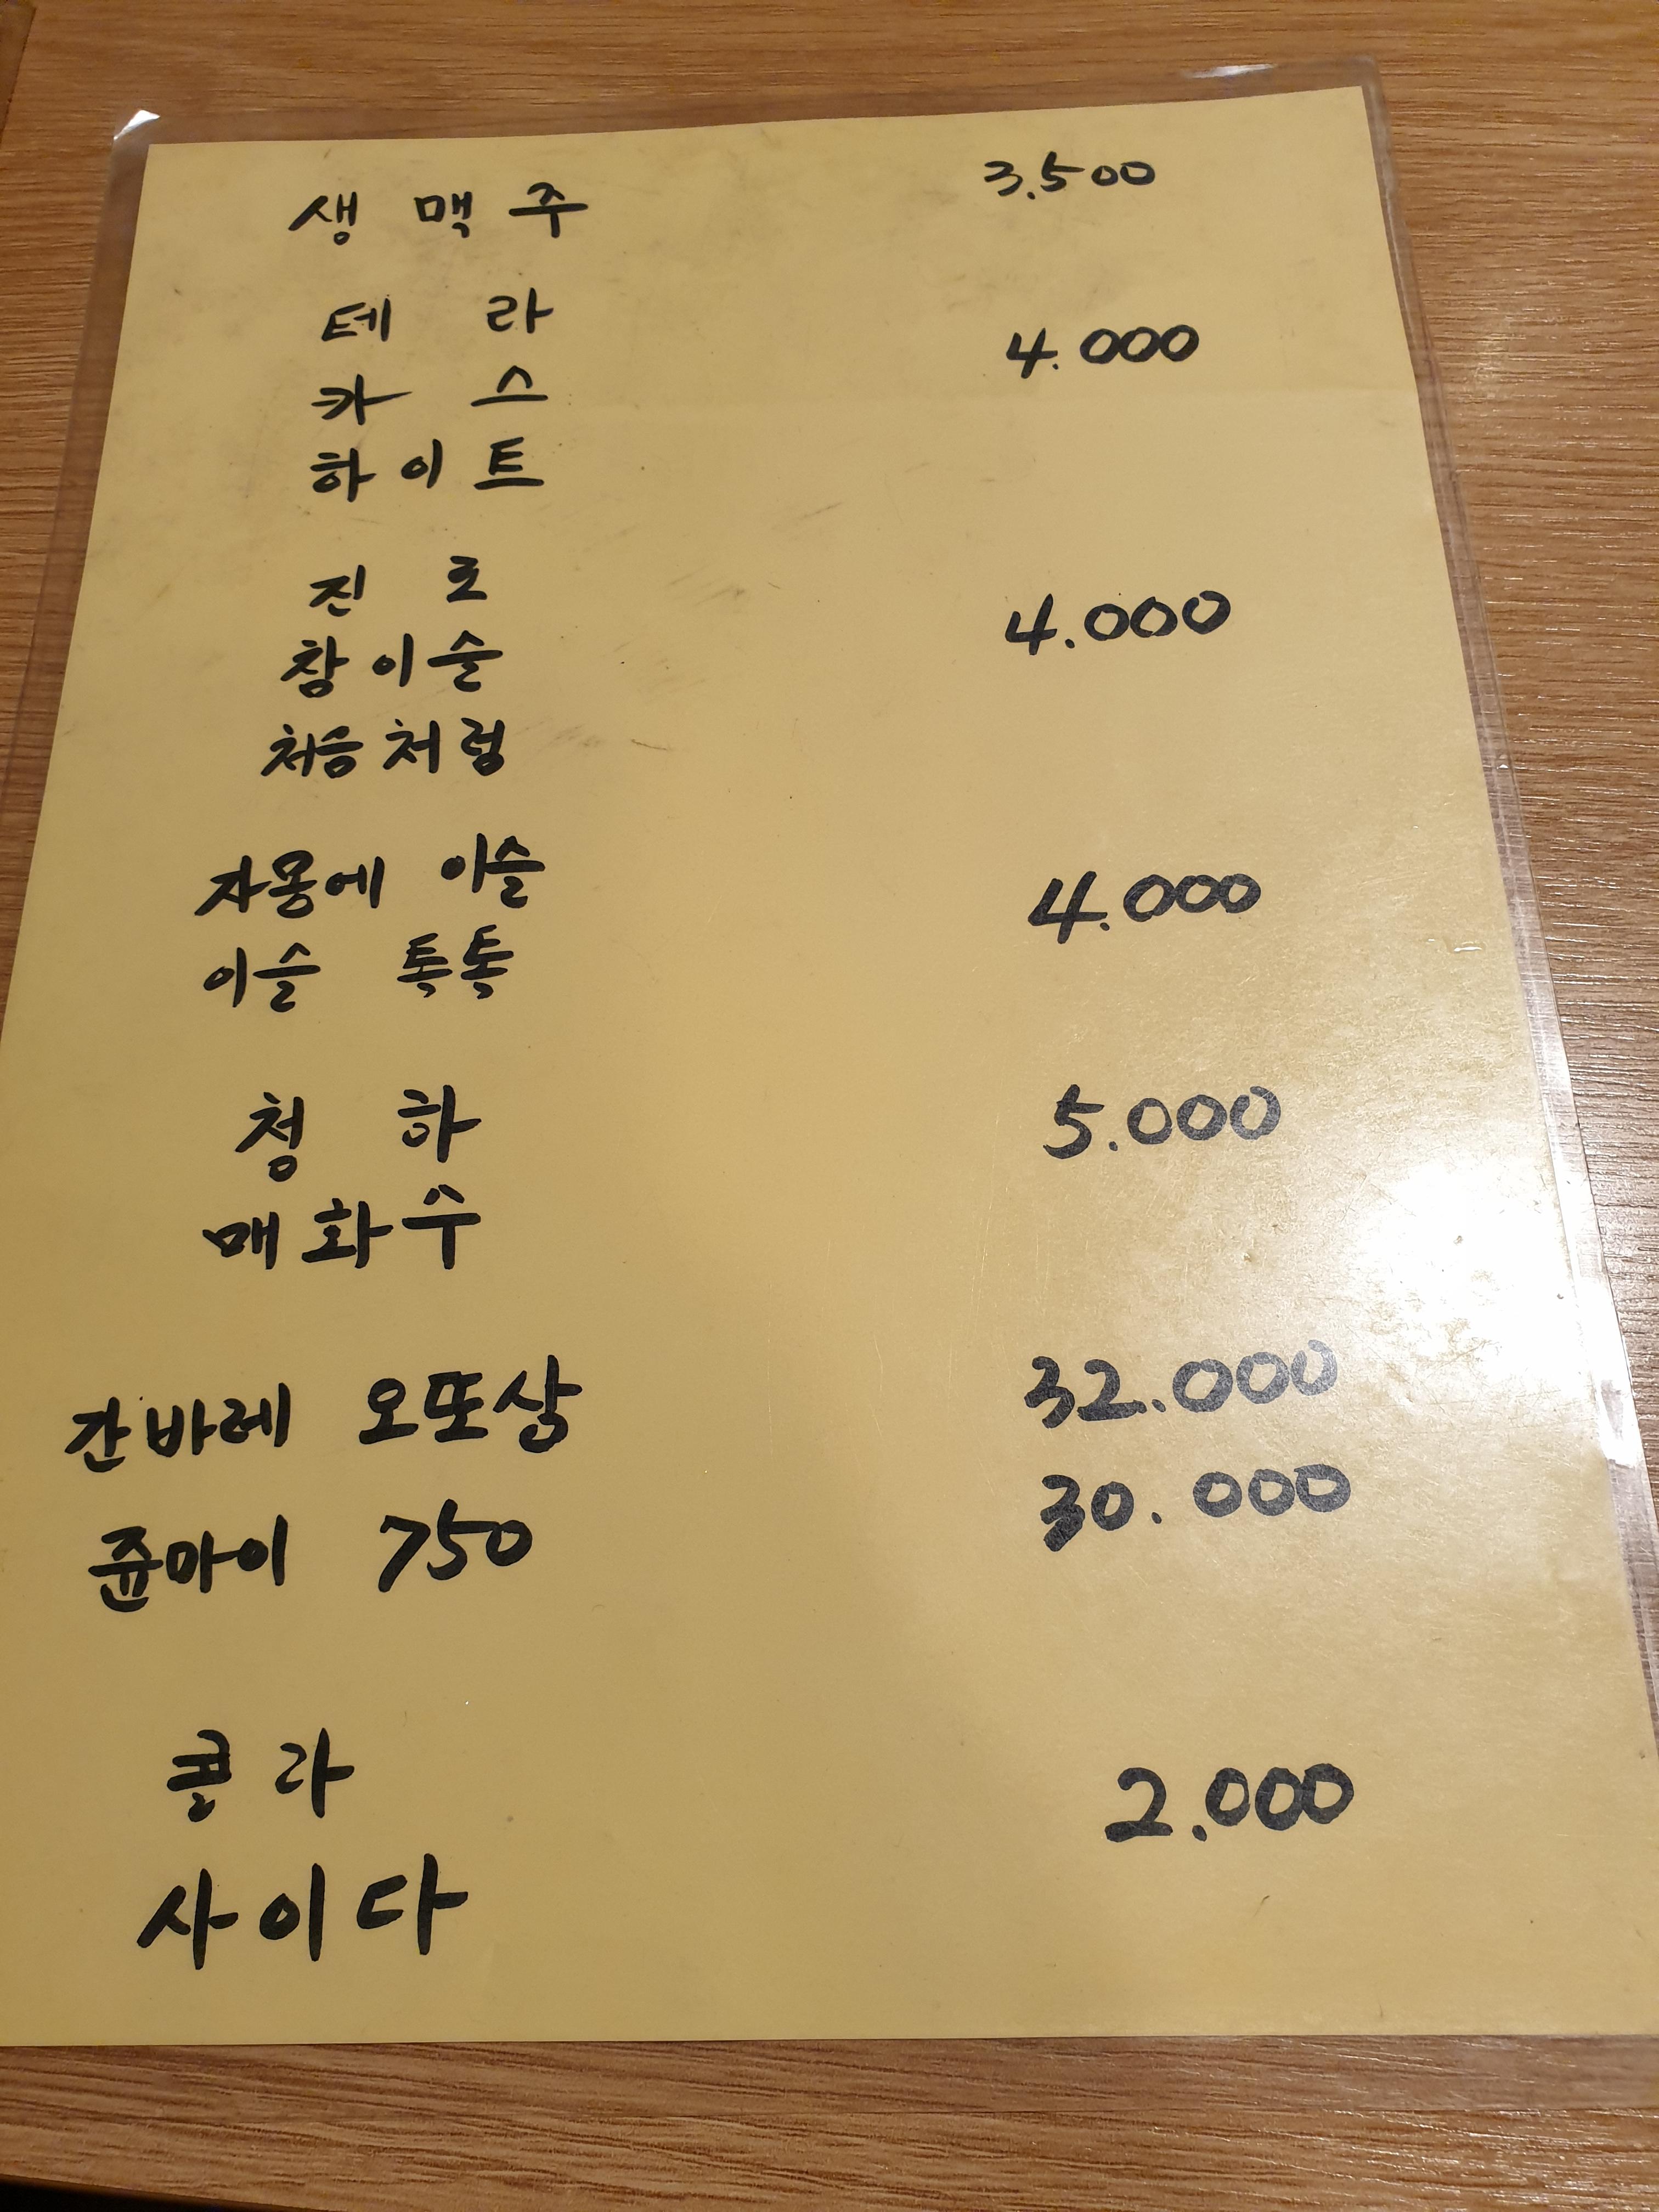 생맥주 3.500
테라 4.000
카스
하이트
진로 4.000
참이슬
처음처럼
자몽에 이슬 4.000
이슬 톡톡
청하 5.000
매화수
간바레 오또상 32.000
쥰마이 750 30.000
콜라 2.000
사이다